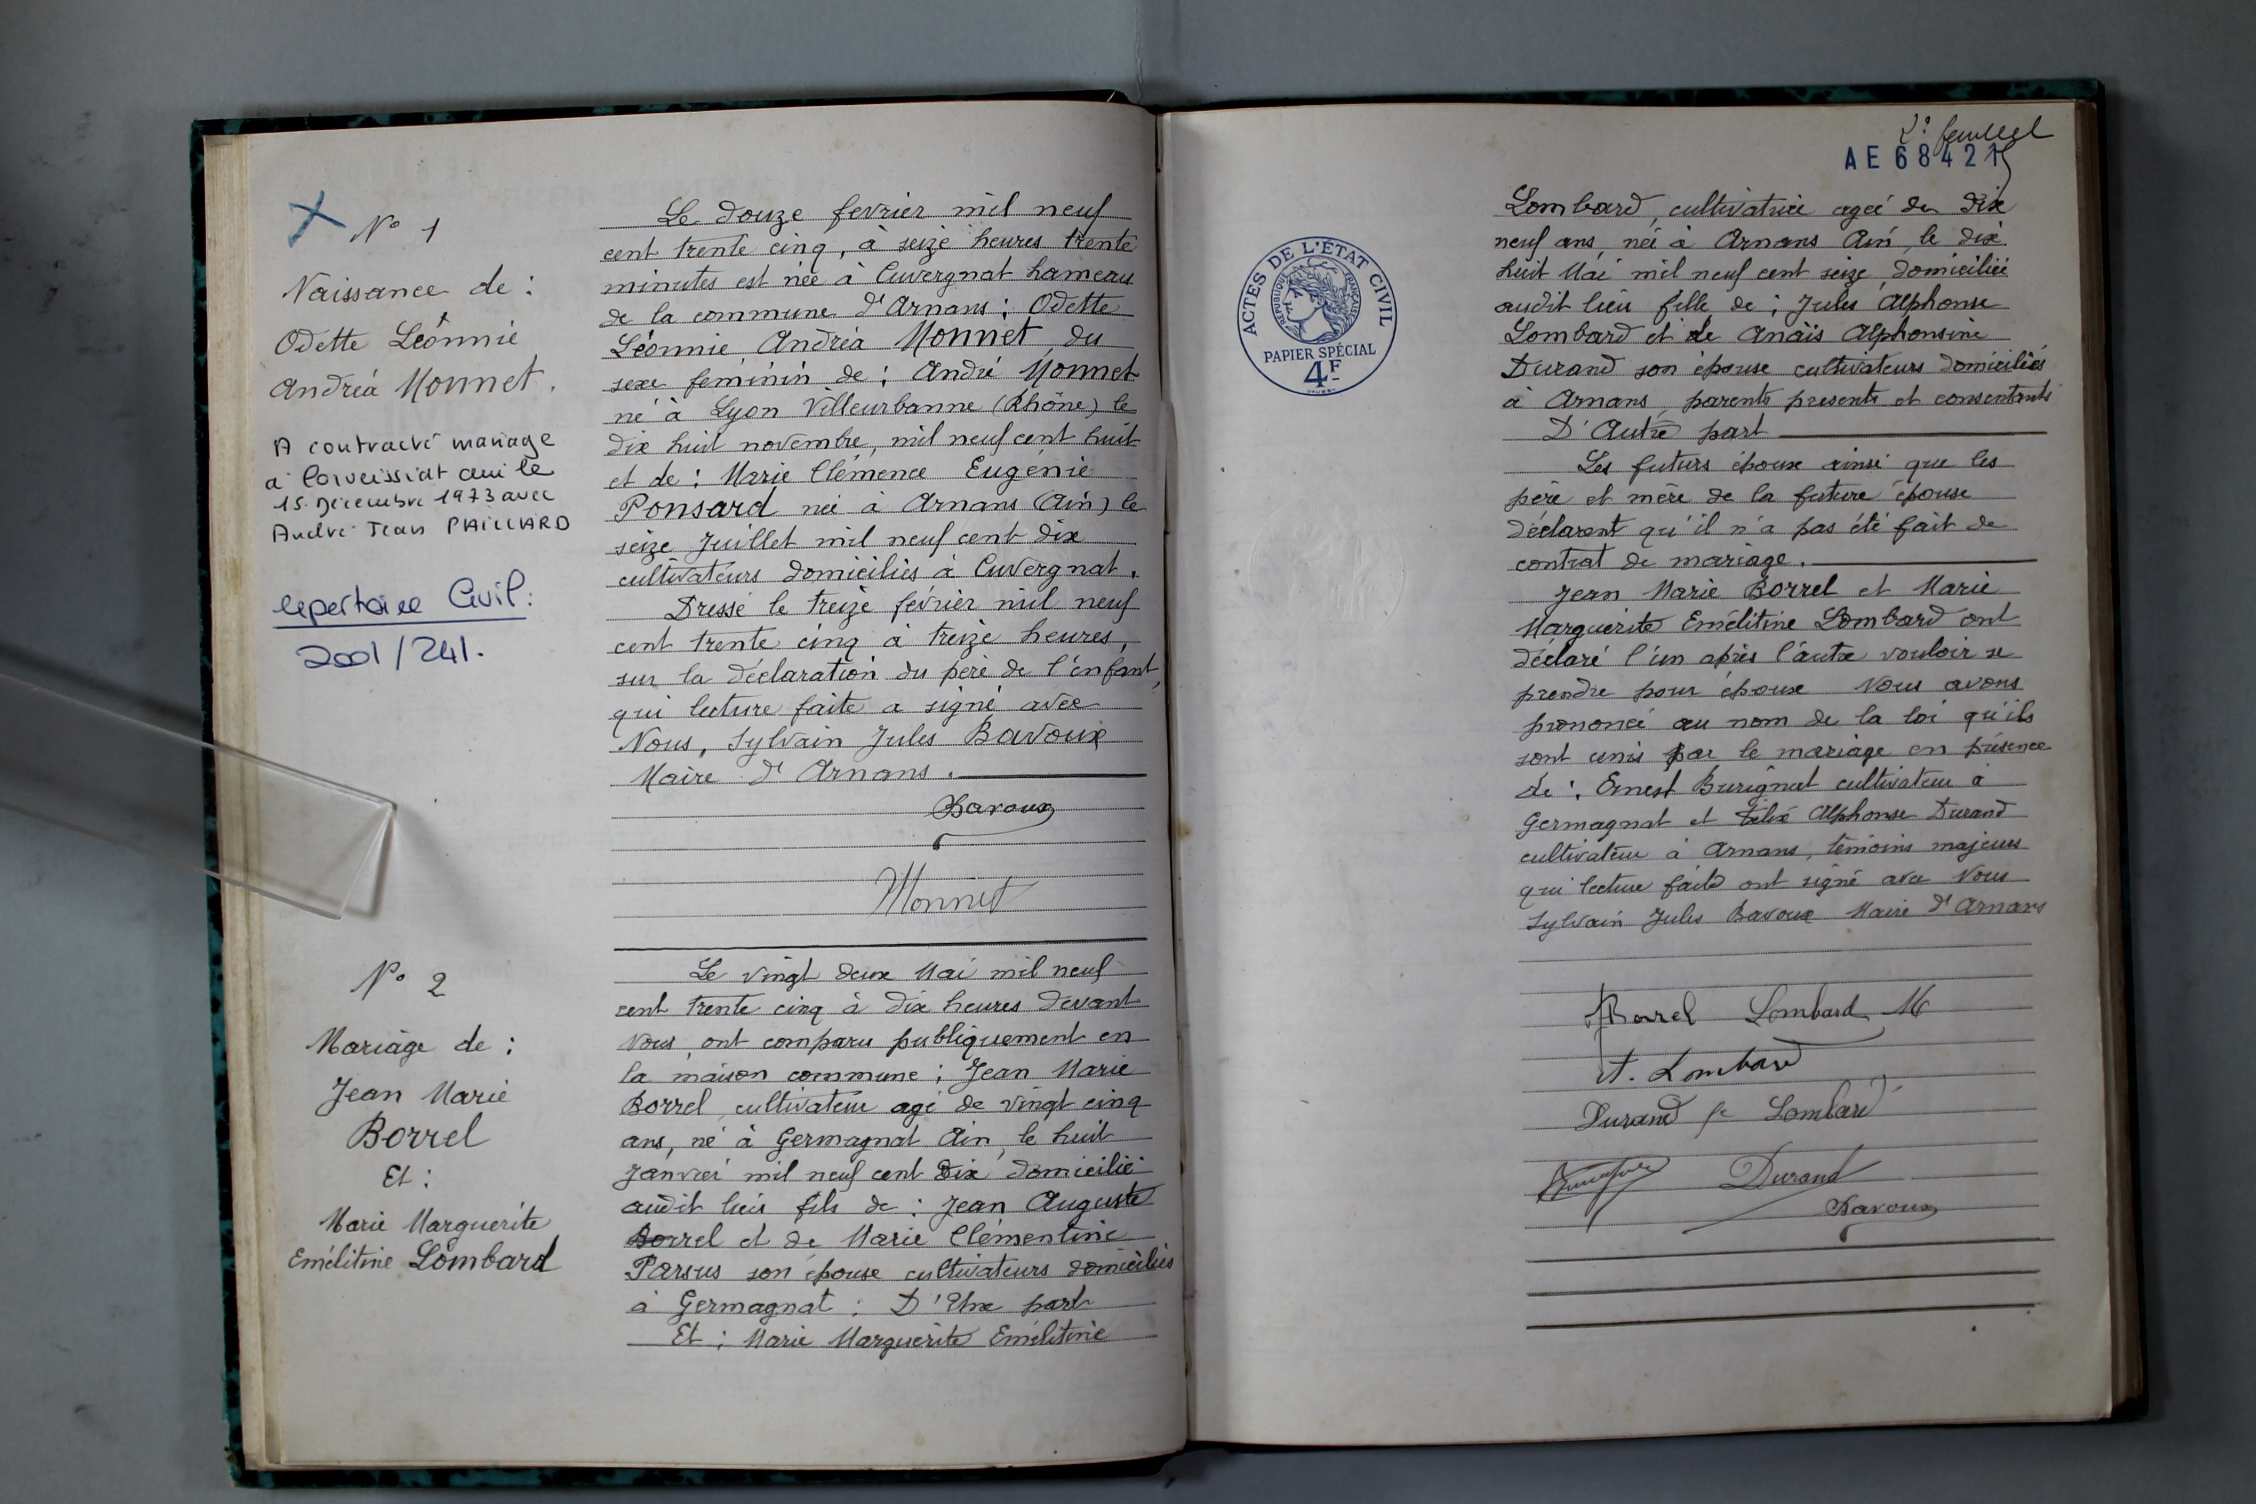 N° 1
Naissance de :
Odette Léonnie
Andréa Monnet.
A contracté mariage
à Corveissiat ain le
15 Décembre 1973 avec
André Jean PAILLARD
Repertoire Civil :
2001/241.
Le douze fevrier mil neuf
cent trente cinq, à seize heures trente
minutes est née à Cuvergnat hameau
de la commune d'Arnans : Odette
Léonnie Andréa Monnet du
sexe feminin de : André Monnet
né à Lyon Villeurbanne (Rhône) le
dix huit novembre, mil neuf cent huit
et de : Marie Clémence Eugénie
Ponsard née à Arnans (Ain) le
seize Juillet mil neuf cent dix
cultivateurs domiciliés à Cuvergnat.
Dressé le treize février mil neuf
cent trente cinq à treize heures,
sur la déclaration du père de l'enfant,
qui lecture faite a signé avec
Nous, Sylvain Jules Bavoux
Maire d'Arnans.
Bavoux
Monnet
N° 2
Mariage de :
Jean Marie
Borrel
Et :
Marie Marguerite
Emélitine Lombard
Le vingt deux Mai mil neuf
cent trente cinq à dix heures devant
Nous, ont comparu publiquement en
la maison commune : Jean Marie
Borrel cultivateur agé de vingt cinq
ans, né à Germagnat Ain, le huit
Janvier mil neuf cent dix domicilié
audit lieu fils de : Jean Auguste
Borrel et de Marie Clémentine
Parsus son épouse cultivateurs domiciliés
à Germagnat : D'Une part
Et : Marie Marguerite Emélitine
2e feuillet
AE 68421
ACTES DE L'ÉTAT CIVIL
RÉPUBLIQUE FRANÇAISE
PAPIER SPÉCIAL
4F
Lombard, cultivatrice ageé de dix
neuf ans, née à Arnans Ain, le dix
huit Mai mil neuf cent seize, domiciliée
audit lieu fille de : Jules Alphonse
Lombard et de Anaïs Alphonsine
Durand son épouse cultivateurs domiciliés
à Arnans, parents presents et consentants
D'Autre part
Les futurs époux ainsi que les
père et mère de la future épouse
déclarent qu'il n'a pas été fait de
contrat de mariage.
Jean Marie Borrel et Marie
Marguerite Emélitine Lombard ont
déclaré l'un après l'autre vouloir se
prendre pour époux Nous avons
prononcé au nom de la loi qu'ils
sont unis par le mariage en présence
de : Ernest Burignat cultivateur à
Germagnat et Félix Alphonse Durand
cultivateur à Arnans, témoins majeurs
qui lecture faite ont signé avec Nous
Sylvain Jules Bavoux Maire d'Arnans
Borrel Lombard M
A. Lombard
Durand fe Lombard
Durand
Bavoux